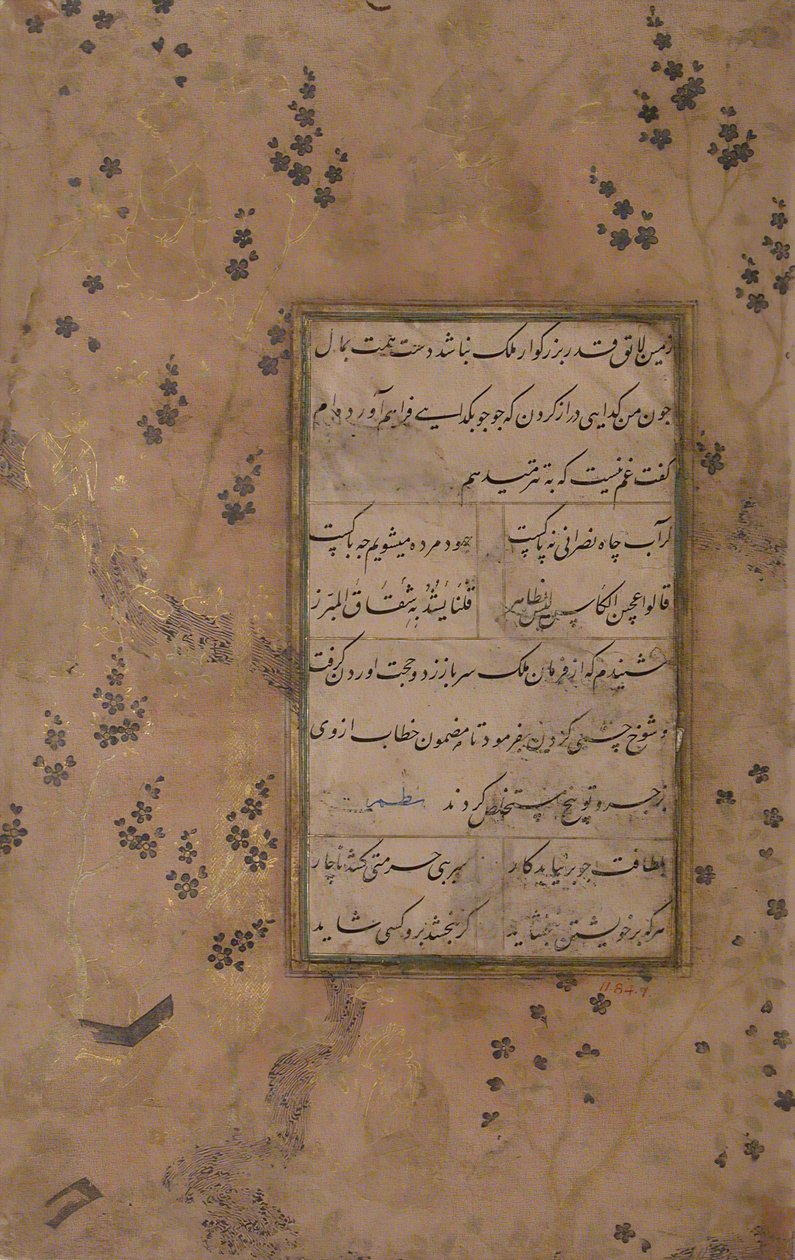 زمین لایق قدر بزرگوار ملک نباشد دست همت بمال
جون من کدایی دراز کردن که جو جو بکدایی فراهم آورده ام
کفت غم نیست که به تتر میدهم
کر آب چاه نصرانی نه پاکست
جهود مرده میشویم چه باکست
قالوا عجین الکلس لیس بطاهر
قلنا یسد به شقاق المبرز
شنیدم که از فرمان ملک سر باز زد و حجت اوردن کرفت
و شوخ چشمی کردن بفرمود تا مضمون خطاب از وی
بزجر و توبیخ مستخلص کردند نظم
بلطافت چو بر نیاید کار
سر به بی حرمتی کشد ناچار
هرکه بر خویشتن نبخشاید
کر نبخشد برو کسی شاید
11.84.9